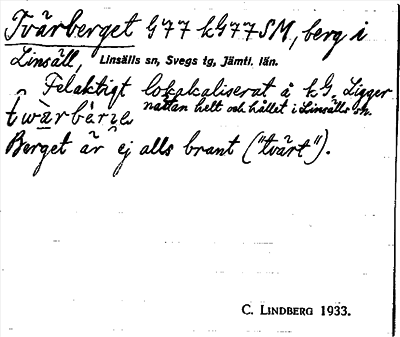 Tvärberget G77 kG77SM, berg i
Linsäll, Linsälls sn, Svegs tg, Jämtl. län.
Felaktigt lokaliserat å kG. Ligger
nästan helt och hållet i Linsälls sn.
Berget är ej alls brant ("tvärt").
C. LINDBERG 1933.